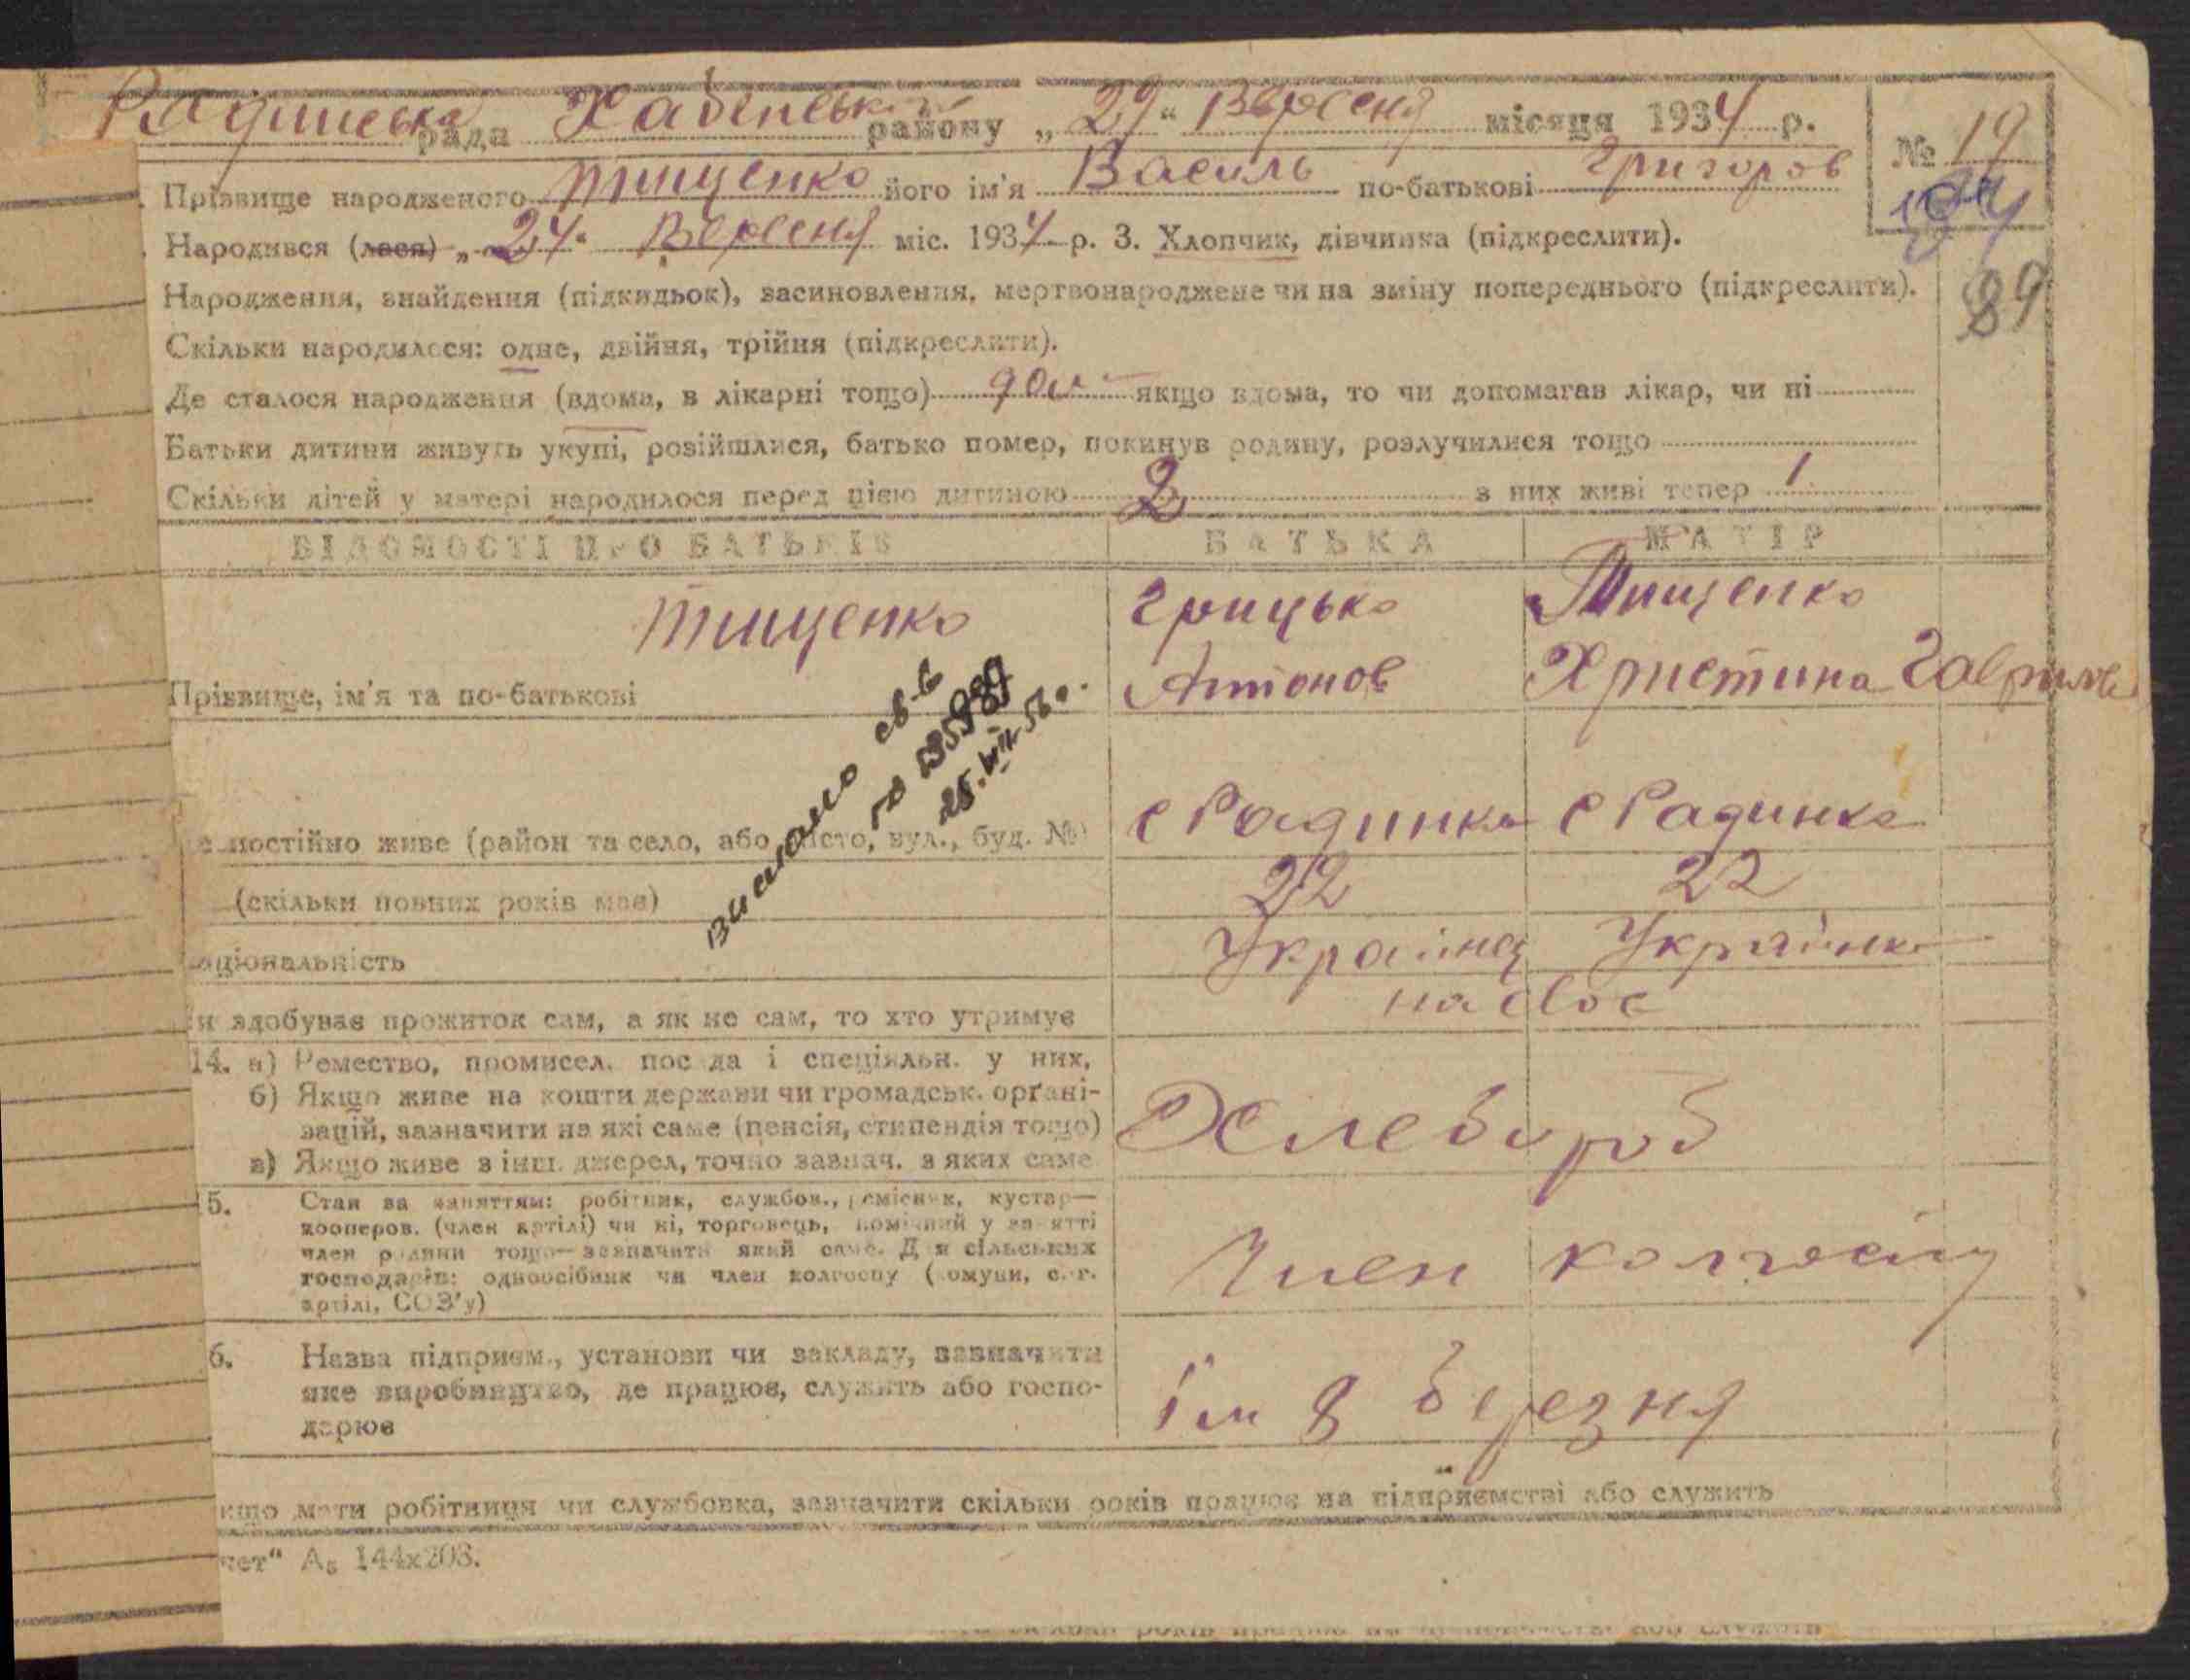 Радинська рада Хабенський району „29“ Вересня місяця 1934 р.
№ 19
Прізвище народженого Тищенко його ім'я Василь по-батькові Григоров
Народився (лася) „24“ Вересня міс. 1934 р. 3. Хлопчик, дівчинка (підкреслити).
Народження, знайдення (підкидьок), засиновлення, мертвонароджене чи на зміну попереднього (підкреслити).
89
Скільки народилося: одне, двійня, трійня (підкреслити).
Де сталося народження (вдома, в лікарні тощо) дом якщо вдома, то чи допомагав лікар, чи ні
Батьки дитини живуть укупі, розійшлися, батько помер, покинув родину, розлучилися тощо
Скільки дітей у матері народилося перед цією дитиною 2 з них живі тепер 1
ВІДОМОСТІ ПРО БАТЬКІВ БАТЬКА МАТІР
Тищенко Грицько Тищенко
Прізвище, ім'я та по-батькові Антонов Христина Гаврилов
видано св-во
25.VII-56 р.
е постійно живе (район та село, або місто, вул., буд. №) с Радинка с Радинка
(скільки повних років має) 22 22
аціональність Украінец Украінка
и здобуває прожиток сам, а як не сам, то хто утримує на своє
14. а) Ремество, промисел, посада і спеціяльн. у них,
б) Якщо живе на кошти держави чи громадськ. орґані-
зацій, зазначити на які саме (пенсія, стипендія тощо) Хлебороб
в) Якщо живе з інш. джерел, точно зазнач. з яких саме
5. Стан за заняттям: робітник, службов., ремісник, кустар—
кооперов. (член артілі) чи ні, торговець, помічний у занятті
член родини тощо—зазначити який саме. Для сільських
господарів: одноосібник чи член колгоспу (комуни, с.-г.
артілі, СОЗ'у) Член колгоспу
6. Назва підприєм., установи чи закладу, зазначити
яке виробництво, де працює, служить або госпо-
дарює ім 8 березня
кщо мати робітниця чи службовка, зазначити скільки років працює на підприємстві або служить
чет“ А₅ 144х203.